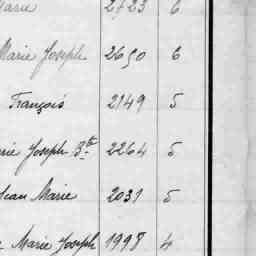 Marie 2723 6
Marie Joseph 2650 6
François 2149 5
rie Joseph Bte 2264 5
Jean Marie 2031 5
Marie Joseph 1998 4